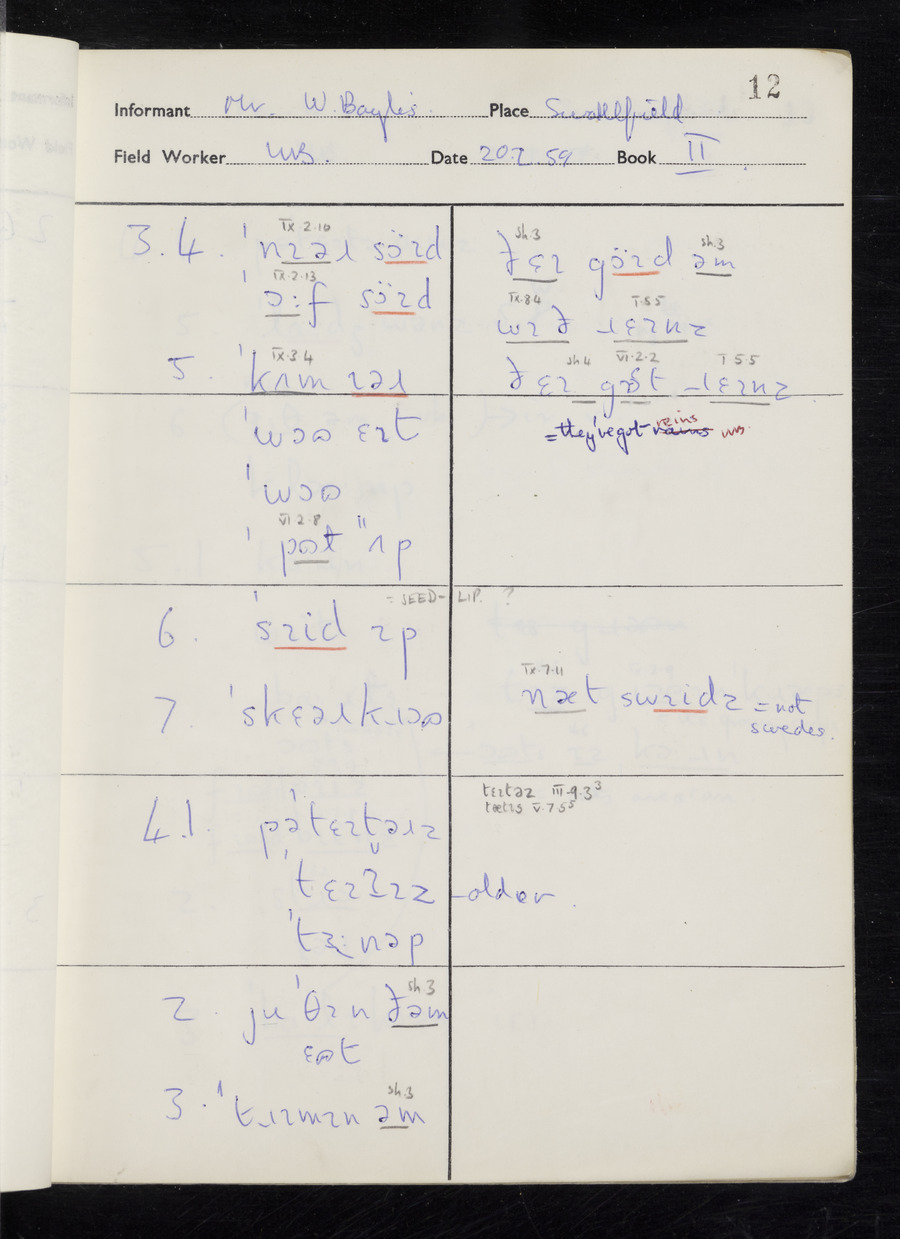 12
Informant Mr. W. Baylis. Place Swallfield
Field Worker WB. Date 20.7.59 Book II
IX.2.10
3.4. ˈnɪəɹ sɔ̈ɪd
IX.2.13
ˈɔːf sɔ̈ɪd
IX.3.4
5. ˈkʌm ɪəɹ
ˈwɔʊ ɛɪt
ˈwɔʊ
VI.2.8
ˈpɒt ˈˈʌp
= SEED-LIP. ?
6. ˈsɪid ɪp
7. ˈskɛəɹkɹɔʊ
4.1. pəˈtɛɪtəɹz
ˈtɛɪʔɪz — older
ˈtɜːnəp
sh.3
2. juˈθɪn ðəm
ɛʊt
sh.3
3. ˈtɹɪmɪn əm
sh.3 sh.3
ðɛɪ gɔ̈ɪd əm
IX.8.4 I.5.5
wɪð ɹɛɪnz
sh.4 VI.2.2 I.5.5
ðɛɪ gɒt ɹɛɪnz
= they've got rains reins WB.
IX.7.11
næt swɪidz = not
swedes.
tɛɪtəz III.9.3³
tætɪs V.7.5⁵